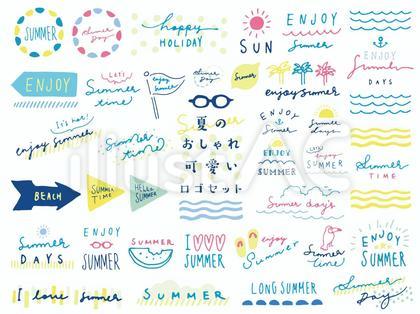 SUMMER
Summer Day
happy
HOLIDAY
SUN
ENJOY
Summer
ENJOY
Let's
Summer
time
enjoy
summer
Summer
Day
Summer
enjoy summer
Summer
DAYS
It's hot!
enjoy Summer
Summer
time
Summer
夏の
おしゃれ
可愛い
ロゴセット
ENJOY
Summer
Summer
days
Summer
enjoy
SUMMER
Summer
TIME
BEACH
SUMMER
TIME
HELLO
SUMMER
Summer days
Summer
DAYS
ENJOY
SUMMER
SUMMER
I
SUMMER
enjoy
Summer
Summer
time
ENJOY
SUMMER
I love Summer
SUMMER
LONG SUMMER
enjoy
Summer
Day